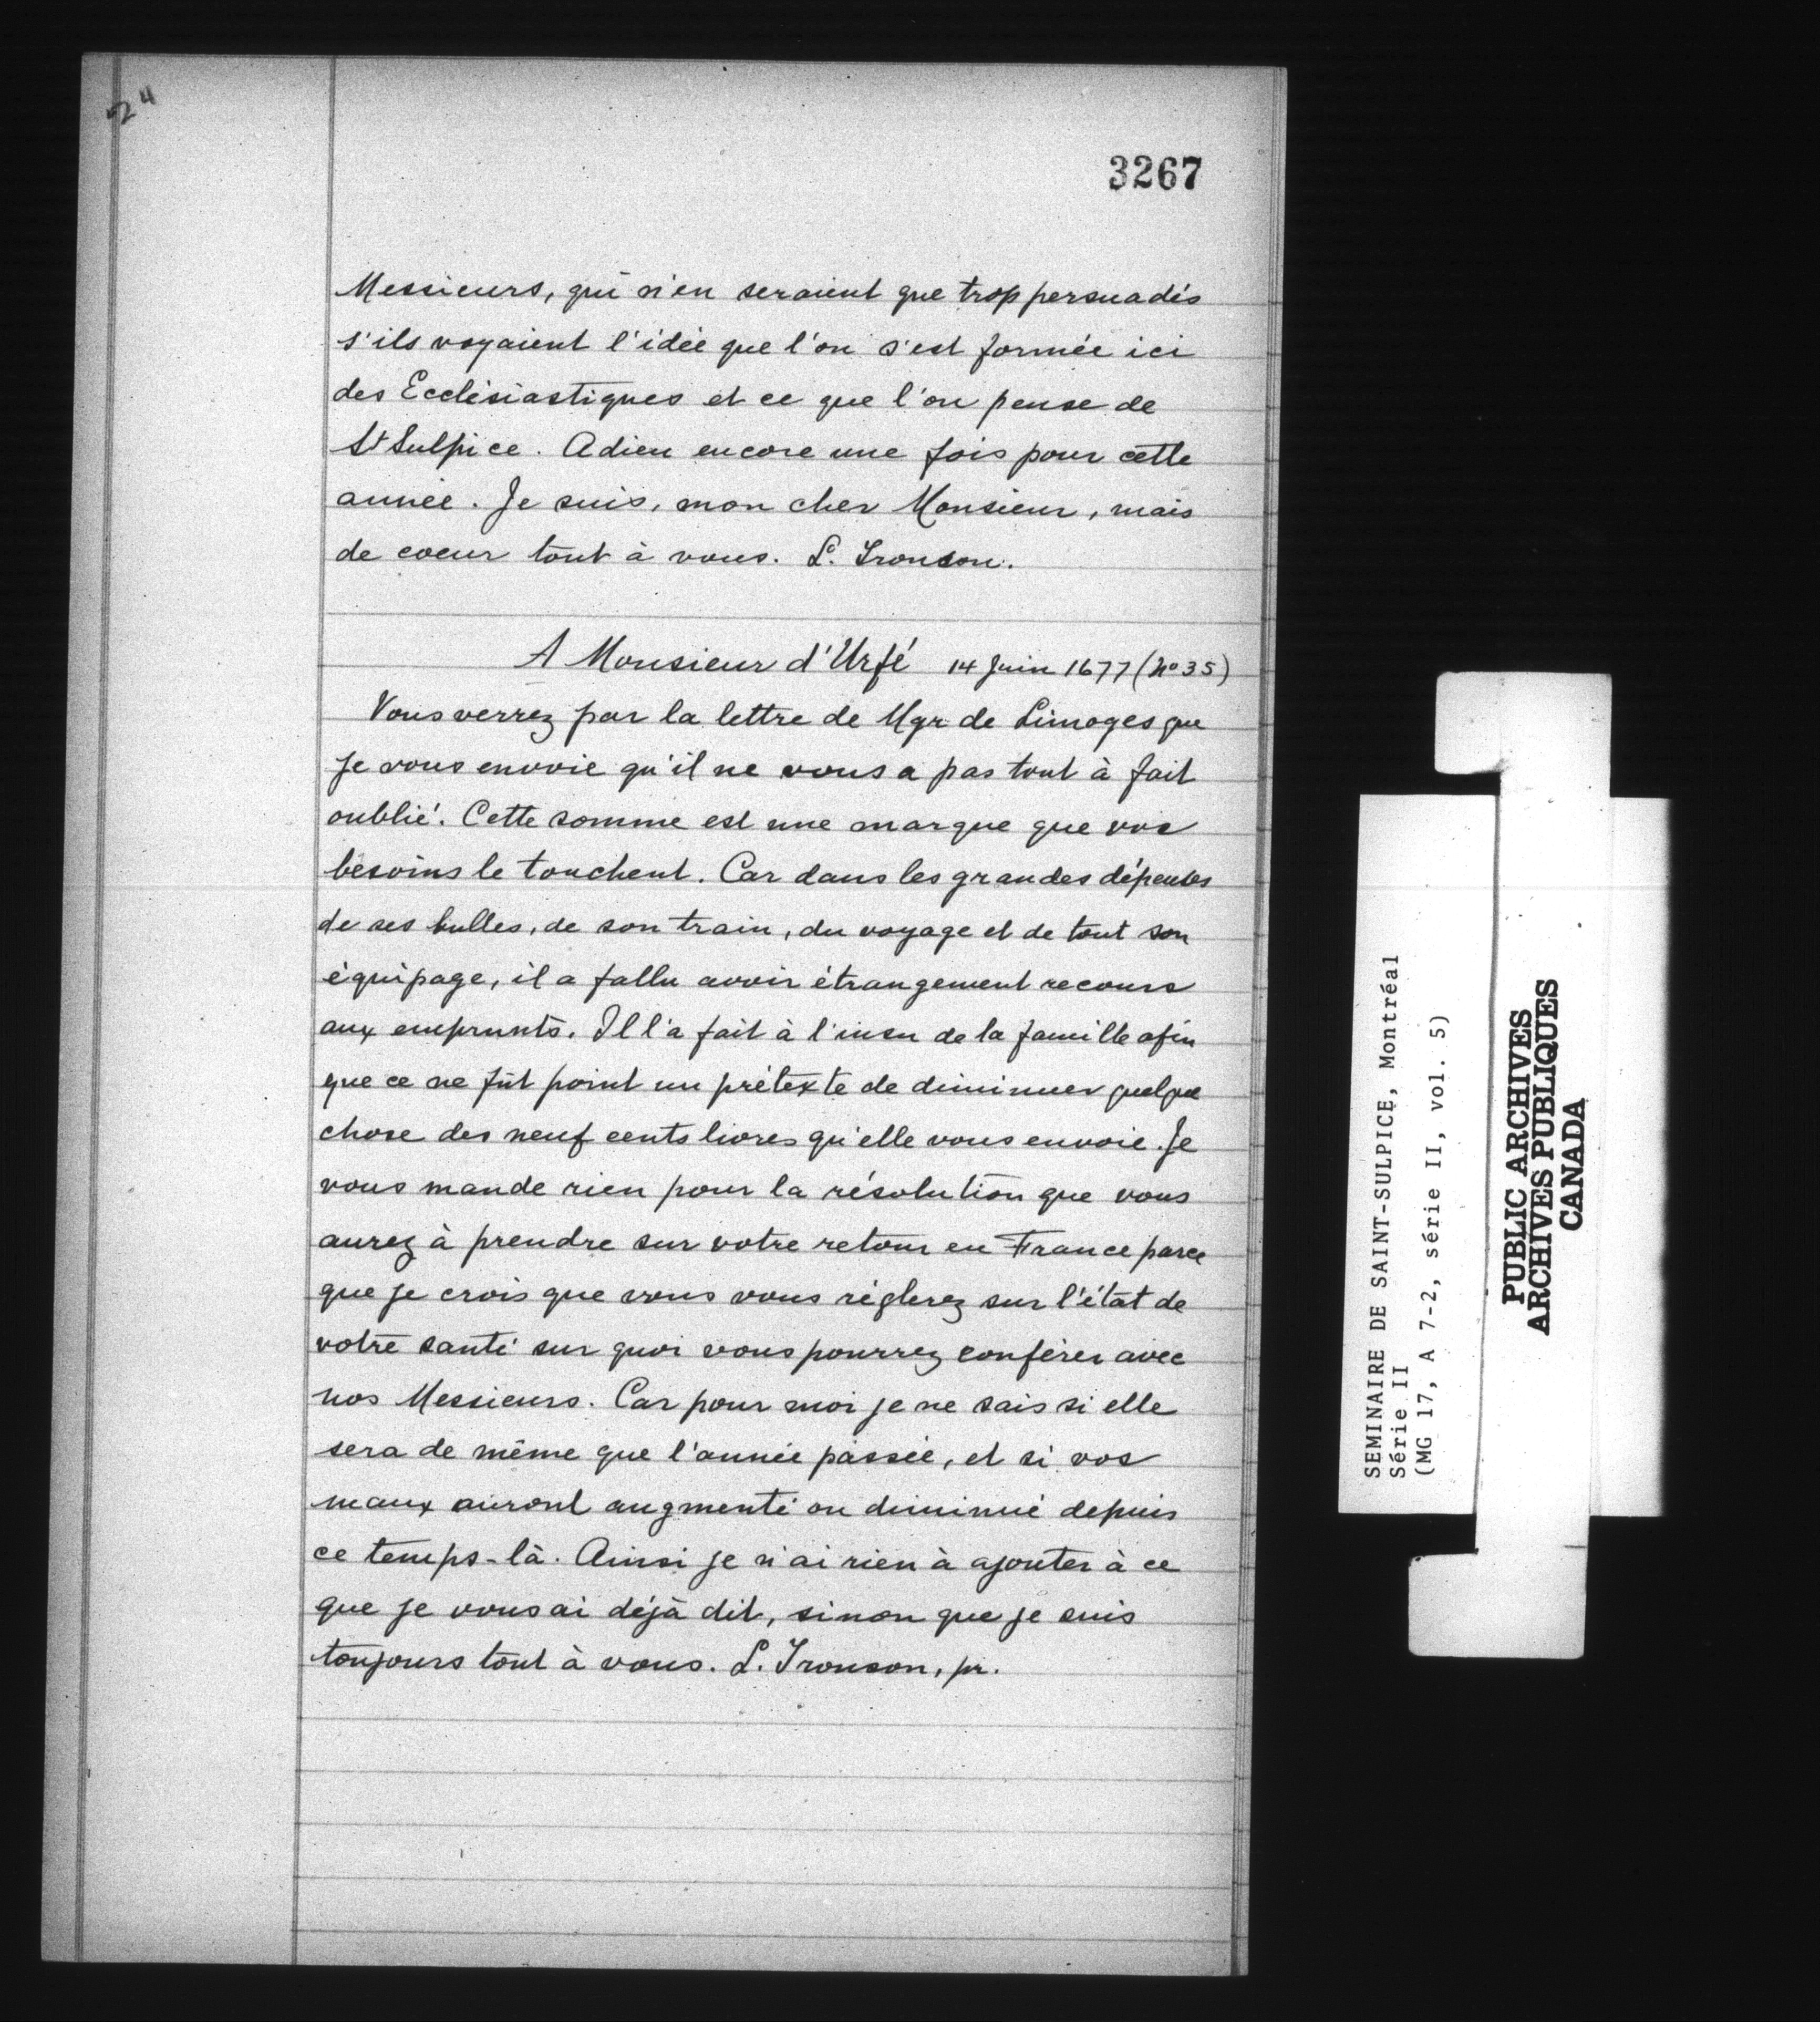 24
3267
Messieurs, qui n'en seraient que trop persuadés
s'ils voyaient l'idée que l'on s'est formée ici
des Ecclésiastiques et ce que l'on pense de
St Sulpice. Adieu encore une fois pour cette
année. Je suis, mon cher Monsieur, mais
de coeur tout à vous. L. Tronson.
A Monsieur d'Urfé 14 Juin 1677 (No 35)
Vous verrez par la lettre de Mgr de Limoges que
je vous envoie qu'il ne vous a pas tout à fait
oublié. Cette somme est une marque que vos
besoins le touchent. Car dans les grandes dépenses
de ses bulles, de son train, du voyage et de tout son
équipage, il a fallu avoir étrangement recours
aux emprunts. Il l'a fait à l'insu de la famille afin
que ce ne fût point un prétexte de diminuer quelque
chose des neuf cents livres qu'elle vous envoie. Je
vous mande rien pour la résolution que vous
aurez à prendre sur votre retour en France parce
que je crois que vous vous règlerez sur l'état de
votre santé sur quoi vous pourrez conférer avec
nos Messieurs. Car pour moi je ne sais si elle
sera de même que l'année passée, et si vos
maux auront augmenté ou diminué depuis
ce temps-là. Ainsi je n'ai rien à ajouter à ce
que je vous ai déjà dit, sinon que je suis
toujours tout à vous. L. Tronson, pr.
SEMINAIRE DE SAINT-SULPICE, Montréal
Série II
(MG 17, A 7-2, série II, vol. 5)
PUBLIC ARCHIVES
ARCHIVES PUBLIQUES
CANADA